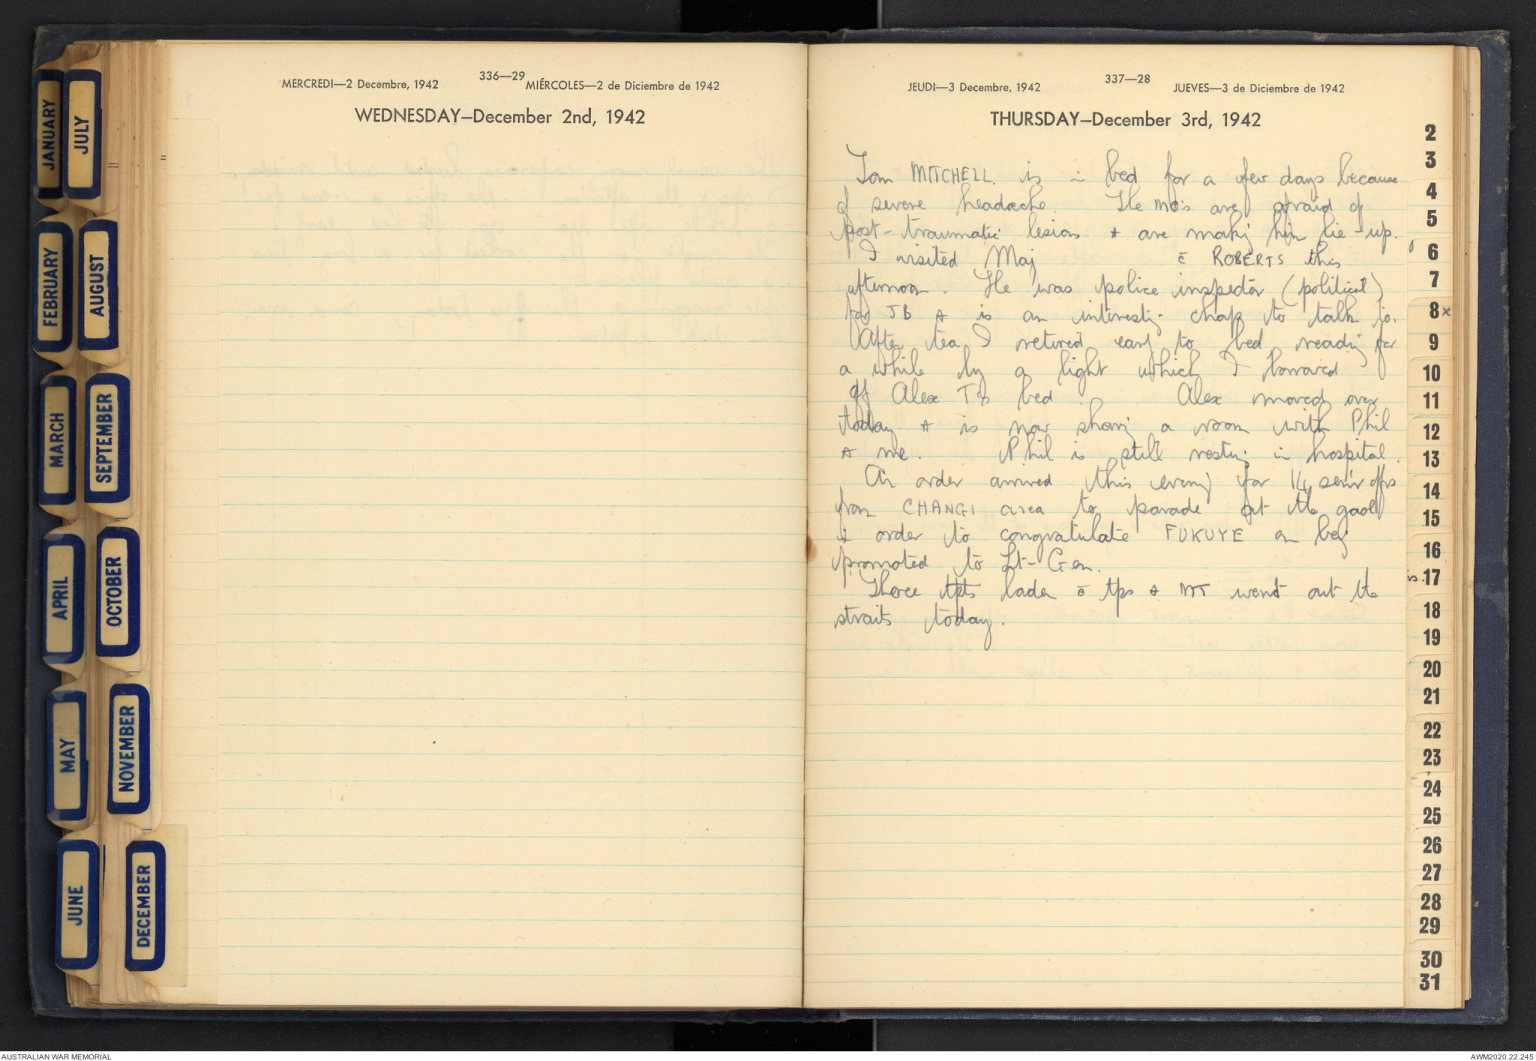 336—29
MERCREDI—2 Decembre, 1942 MIÉRCOLES—2 de Diciembre de 1942
WEDNESDAY—December 2nd, 1942
337—28
JEUDI—3 Decembre, 1942 JUEVES—3 de Diciembre de 1942
THURSDAY—December 3rd, 1942
Tom MITCHELL is in bed for a few days because
of severe headache. The MO's are afraid of
post-traumatic lesion + are makg him lie-up.
I visited Maj c̄ ROBERTS this
afternoon. He was police inspector (political)
for JB + is an interestg chap to talk to.
After tea I retired early to bed readg for
a while by a light which I borrowed
off Alex T's bed. Alex moved over
today + is now sharg a room with Phil
+ me. Phil is still restg in hospital.
An order arrived this eveng for 14 senr offrs
from CHANGI area to parade at the gaol
in order to congratulate FUKUYE on beg
promoted to Lt-Gen.
Three tpts laden c̄ tps + MT went out the
straits today.
JANUARY
JULY
FEBRUARY
AUGUST
MARCH
SEPTEMBER
APRIL
OCTOBER
MAY
NOVEMBER
JUNE
DECEMBER
2
3
4
5
6
7
8x
9
10
11
12
13
14
15
16
17
18
19
20
21
22
23
24
25
26
27
28
29
30
31
AUSTRALIAN WAR MEMORIAL
AWM2020.22.245